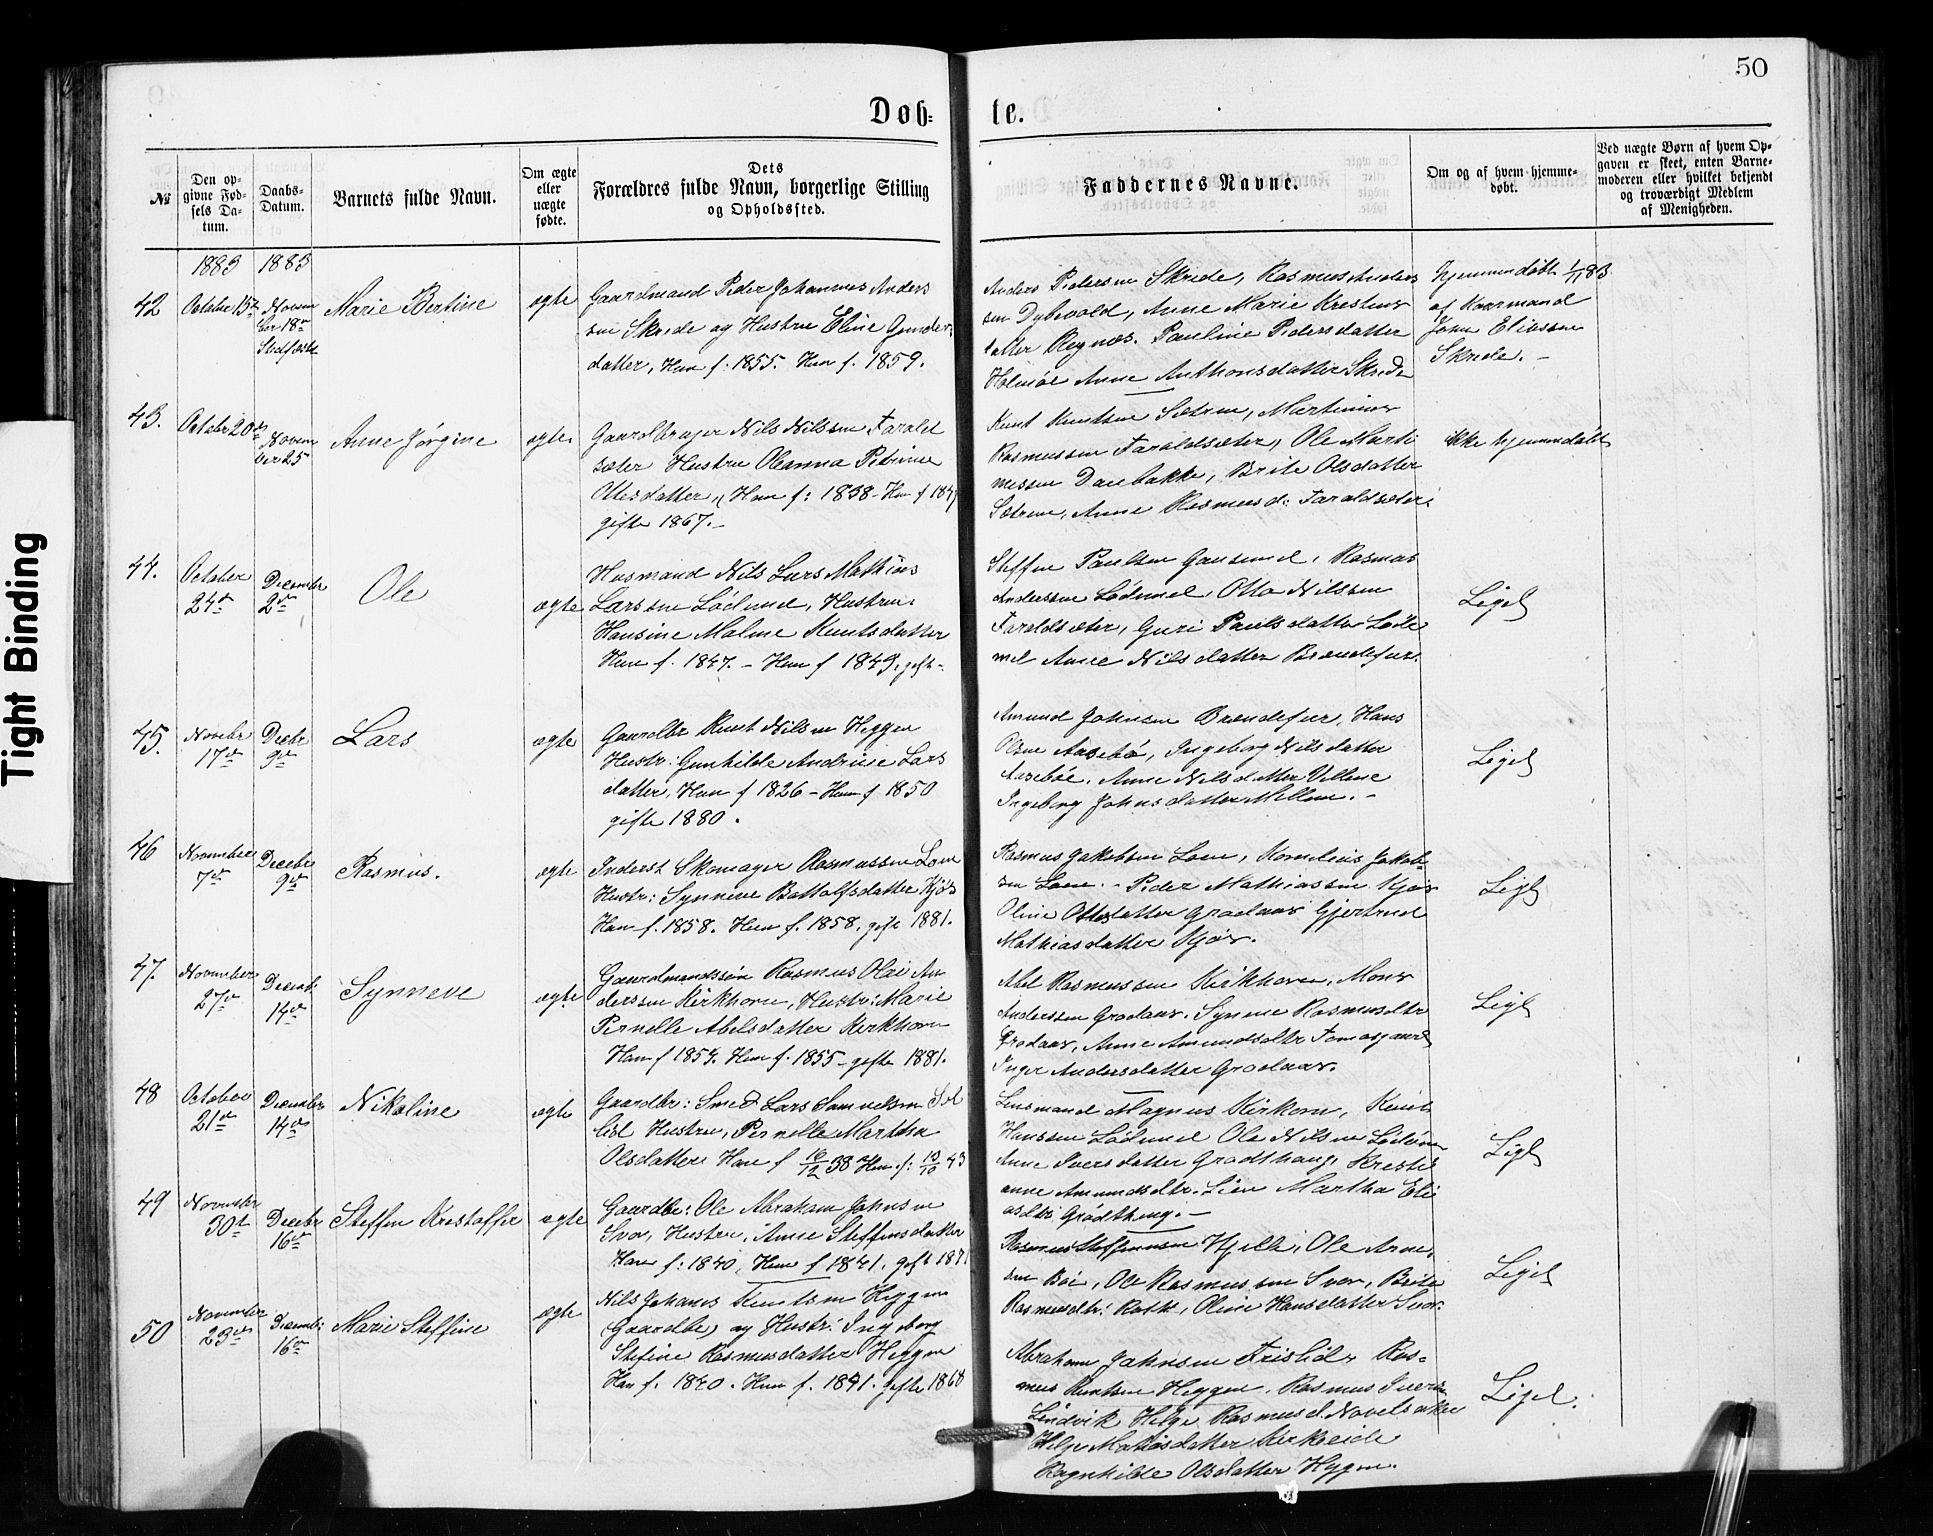 50
Døb-
te.
№
Den op-
givne Fød-
sels Da-
tum.
Daabs-
Datum.
Barnets fulde Navn.
Om ægte
eller
uægte
fødte.
Dets
Forældres fulde Navn, borgerlige Stilling
og Opholdssted.
Faddernes Navne.
Om og af hvem hjemme-
døbt.
Ved uægte Børn af hvem Op-
gaven er skeet, enten Barne-
moderen eller hvilket bekjendt
og troværdigt Medlem
af Menigheden.
1883 1883
42
October 15de
Novem
ber 18de
Stadfæstet
Marie Bertine
ægte
Gaardmand Peder Johannes Anders
sen Skrede og Hustru Eline Gunder
datter, Han f. 1855. Hun f. 1859.
Anders Pedersen Skrede, Rasmus Anders
sen Dybevold, Anne Marie Krestens
datter Regnæs. Pauline Pedersdatter
Holmøe Anne Anthonsdatter Skrede
hjemmedøbt 1/11 83
af Kaarmand
John Eliassen
Skrede. -
43.
October 20de
Novem
ber 25
Anne Jørgine
ægte
Gaardbruger Nils Nilssen Farald
sæter Hustru Oleanna Petrine
Ottesdatter, Han f: 1838 - Hun f
gifte 1867. -
Knut Knutsen Sætren, Martinus
Rasmussen Faraldsæter, Ole Marti
nussen Daubakke, Brite Olsdatter
Sætren, Anne Rasmusd: Faraldsæter
ikke hjemmedøbt
44.
October
24de
December
2den
Ole
ægte
Husmand Nils Lars Mathias
Larssen Lødemel, Hustru:
Hansine Malene Knutsdatter
Han f. 1847. - Hun f 1849, gift-
Steffen Paulsen Gausemel, Rasmus
Anderssen Lødemel, Otto Nilssen
Faraldsæter, Guri Paulsdatter Løde
mel Anne Nilsdatter Brændefur.
Ligel
45.
Novebr
17de
Decbr
9de
Lars
ægte
Gaardbr Knut Nilsen Heggen
Hustr: Gunhilde Andrine Lars
datter, Han f 1826 - Hun f 1850
gifte 1880.
Amund Johnsen Brændefur, Hans
Olsen Aasebø, Ingeborg Nilsdatter
Aasebøe, Anne Nilsdatter Villene
Ingeborg Johnsdatter Mellem. -
Ligel
46
November
7de
Decebr
9de
Rasmus.
ægte
Inderst Skomager Rasmussen Loen
Hustr: Synneve Bottolfsdatter Kjøs
Han f. 1858. Hun f. 1858, gifte 1881.
Rasmus Jakobsen Loen, Kornelius Jakob-
sen Loen. - Peder Mathiassen Kjøs
Oline Ottesdatter Grodaas Gjertrud
Mathiasdatter Kjøs.
Ligel
47.
November
27de
Decemb:
14de
Synneve
ægte
Gaardmandssøn Rasmus Olai An-
derssen Kirkhorn, Hustr: Marie
Pernelle Abelsdatter Kirkhorn
Han f 1854. Hun f. 1855 - gifte 1881.
Abel Rasmussen Kirkhorn, Mons
Anderssen Grodaas. Synneve Rasmusdtr
Grodaas, Anne Amundsdtr Tomasgaard
Inger Andersdatter Grodaas.
Ligel
48
October
21de
December
14de
Nikoline
ægte
Gaardbr: Smed Lars Samuelsen Sel
lid Hustru, Pernelle Martha
Olsdatter Han f 16/12 38 Hun f: 10/10 43
Lensmand Magnus Kirkorn, Knut
Hanssen Lødemel Ole Nilsen Lødem
Anne Iversdatter Grodthaug, Kresti
anne Amundsdtr. Lien Martha Eli
asdtr Grødthaug. -
Ligel
49
November
30te
Decebr
16de
Steffen Krestoffer
ægte
Gaardbr: Ole Abraham Johnsen
Svor, Hustru, Anne Steffensdatter
Han f: 1840, Hun f 1841, gift 1871
Rasmus Steffensen Hjelle, Ole Arne
sen Bøe, Ole Rasmussen Svor, Brite
Rasmusdtr: Raftt, Oline Hansdatter Svor.
Ligel
50
November
23de
Decemb:
16de
Marie Steffine
ægte
Nils Johanes Knutsen Heggen
(Gaardbr) og Hustr: Ingeborg
Stefine Rasmusdatter Heggen
Han f. 1840. Hun f. 1841. gifte 1868
Abraham Johnsen Frislid, Ras-
mus Knutsen Heggen, Rasmus Ivers
Lindvik Helge Rasmusd. Navelsaker
Helge Mathiasdatter Kirkeide
Ragnhilde Olsdatter Heggen.
Ligel.
Tight Binding